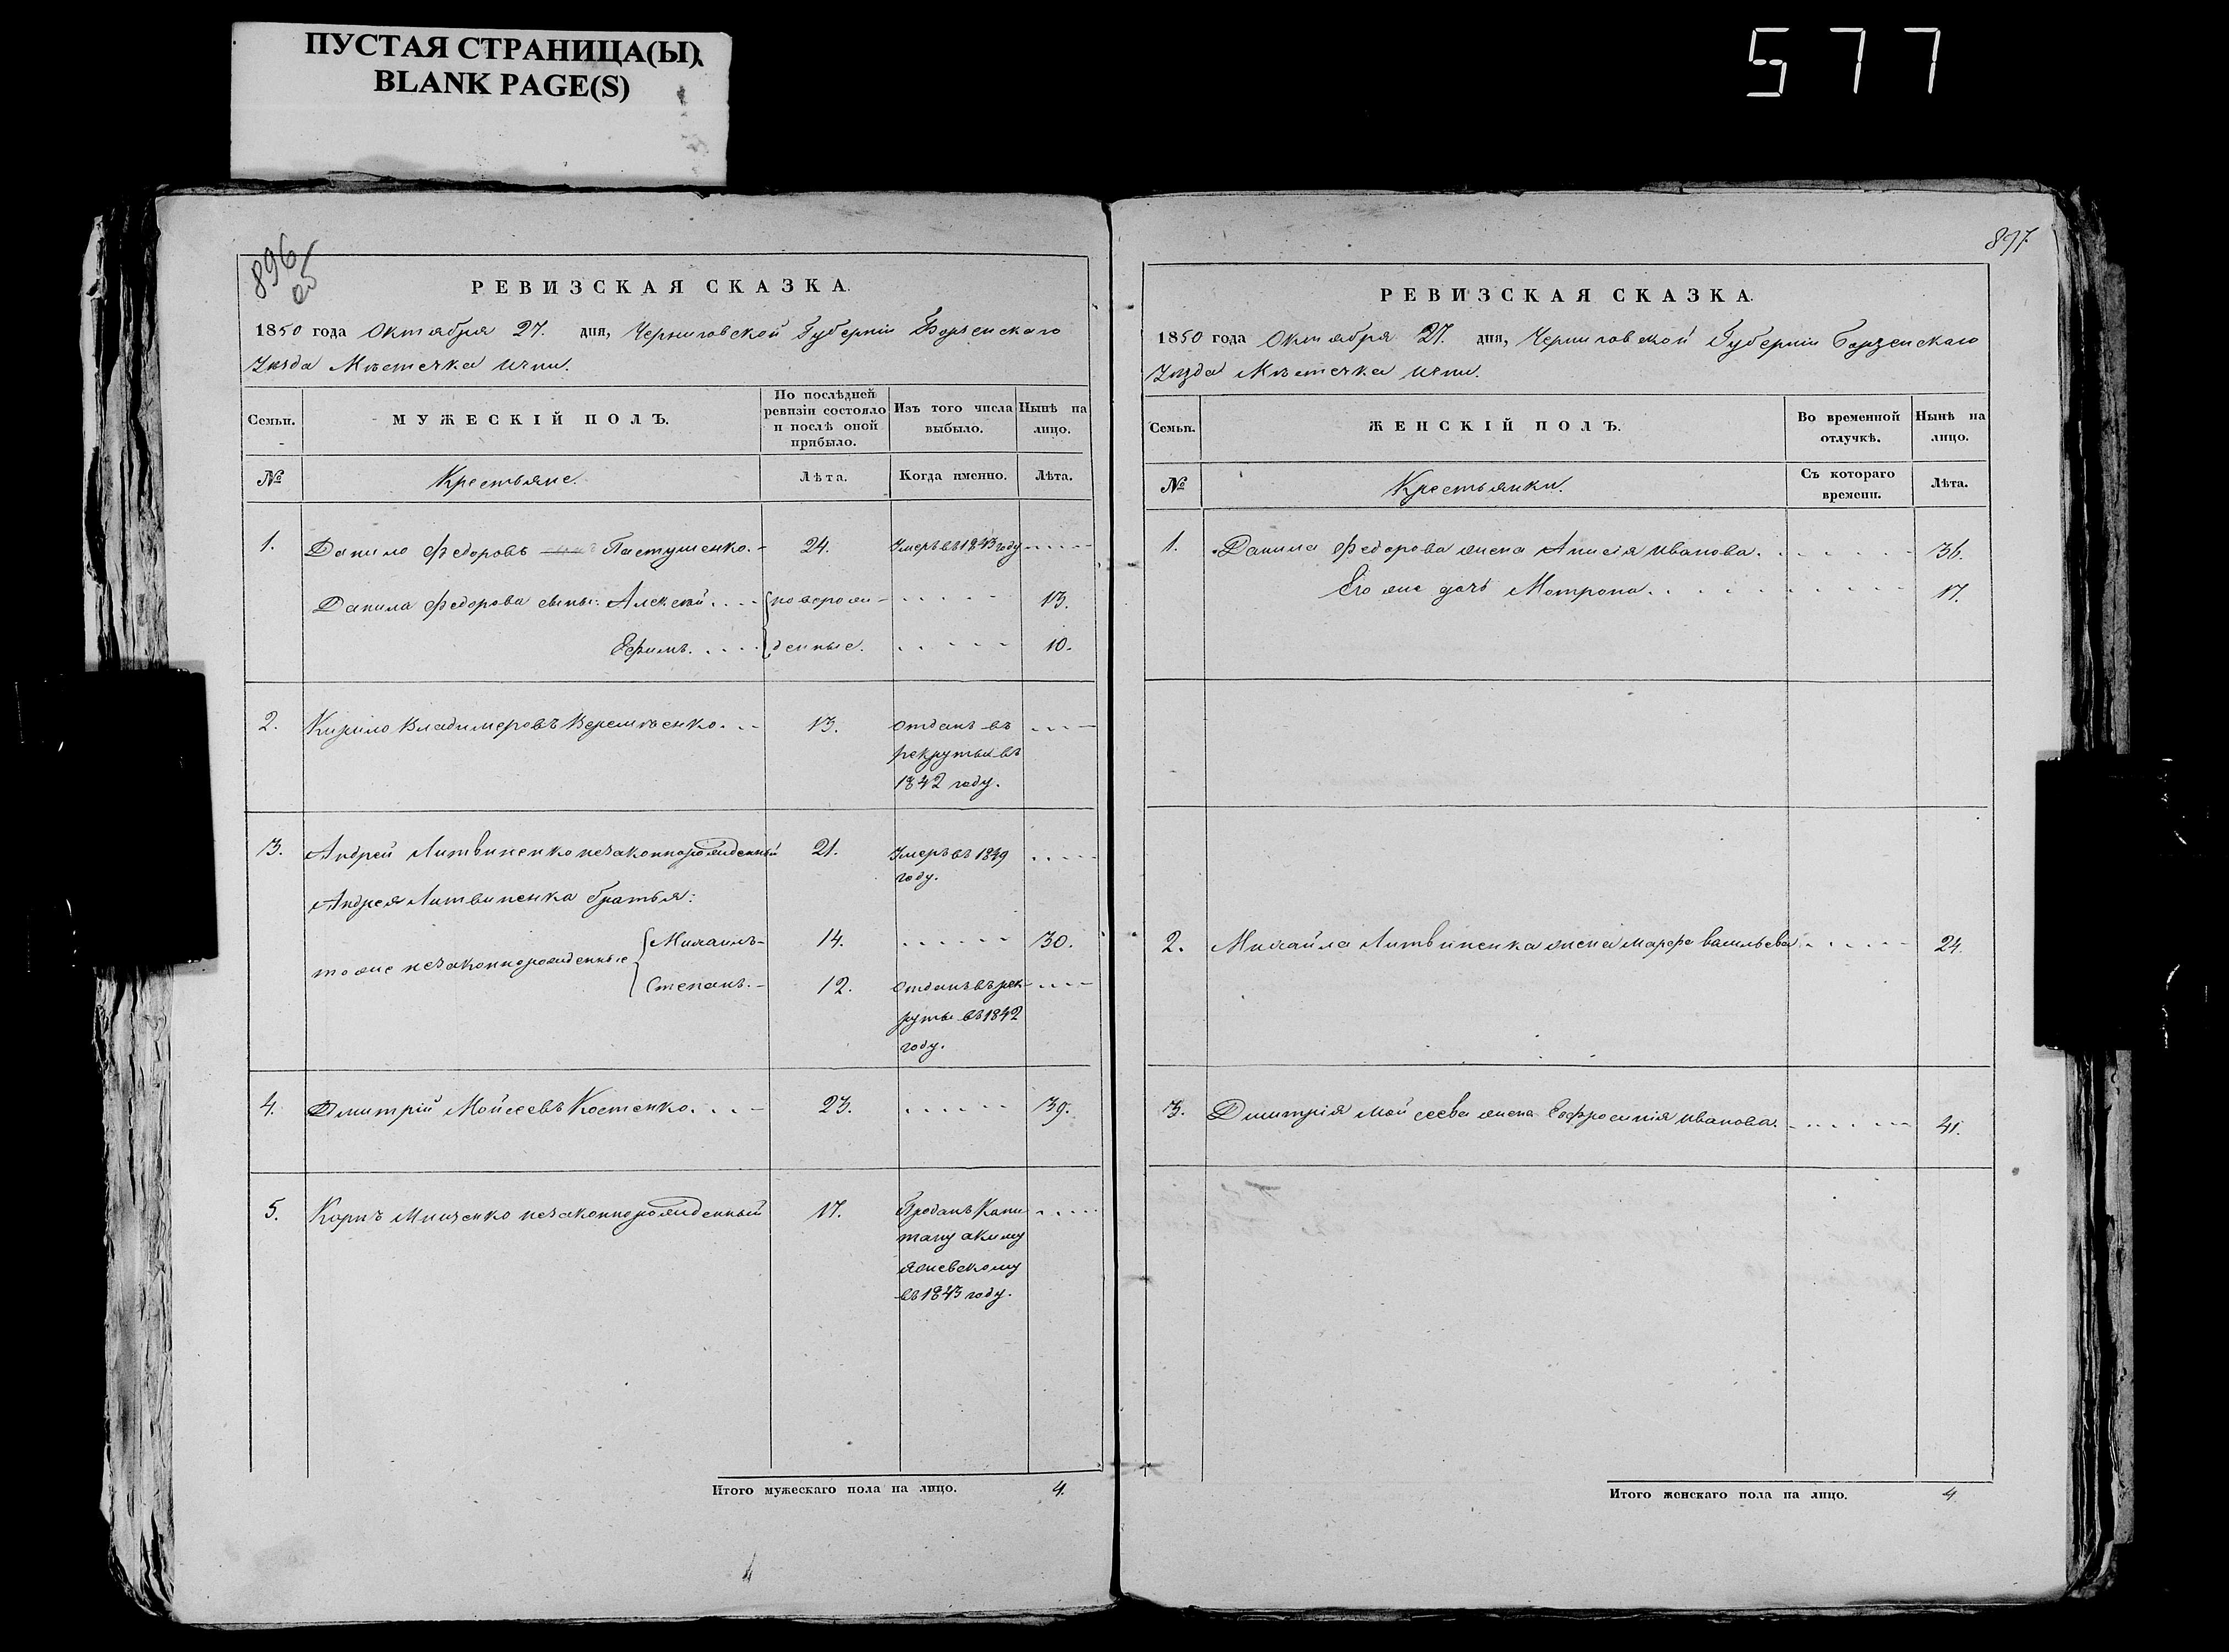 ПУСТАЯ СТРАНИЦА(Ы),
BLANK PAGE(S)
577
896
об
РЕВИЗСКАЯ СКАЗКА.
1850 года Октября 27. дня, Черниговской Губерніи Борзенскаго
Уѣзда Мѣстечка Ични.
Семьи.
МУЖЕСКІЙ ПОЛЪ.
По послѣдней
ревизіи состояло
и послѣ оной
прибыло.
Изъ того числа
выбыло.
Нынѣ на
лицо.
№
Крестьяне.
Лѣта.
Когда именно.
Лѣта.
1. Данило Федоровъ Пастушенко. 24. Умеръ въ 1843 году
Данила Федорова сыны: Алексѣй . . . новорож- 13.
Ефимъ. . . . . денные. 10.
2. Кирило Владимеровъ 13. Отданъ въ
рекруты въ
1842 году.
3. Андрей Литвиненко незаконнорожденный 21. Умеръ въ 1849
году.
Андрея Литвиненка братья:
тоже незаконнорожденные
Михаилъ 14. 30.
Степанъ. 12. Отданъ въ рек-
руты въ 1842
году.
4. Дмитрій Мойсеевъ Костенко. . . . 23. 39.
5. Карпъ незаконнорожденный 17. Проданъ Капи
тану Акиму
въ 1843 году.
Итого мужескаго пола на лицо. 4.
897.
РЕВИЗСКАЯ СКАЗКА.
1850 года Октября 27. дня, Черниговской Губерніи Борзенскаго
Уѣзда Мѣстечка Ични.
Семьи.
ЖЕНСКІЙ ПОЛЪ.
Во временной
отлучкѣ.
Нынѣ на
лицо.
№
Крестьянки.
Съ котораго
времени.
Лѣта.
1. Данила Федорова жена Анисія Иванова. 36.
Его же дочь Мотрона. 17.
2. Михайла Литвиненка жена Марфа Васильева 24.
3. Дмитрія Мойсеева жена Евфросинія Иванова. 41.
Итого женскаго пола на лицо. 4